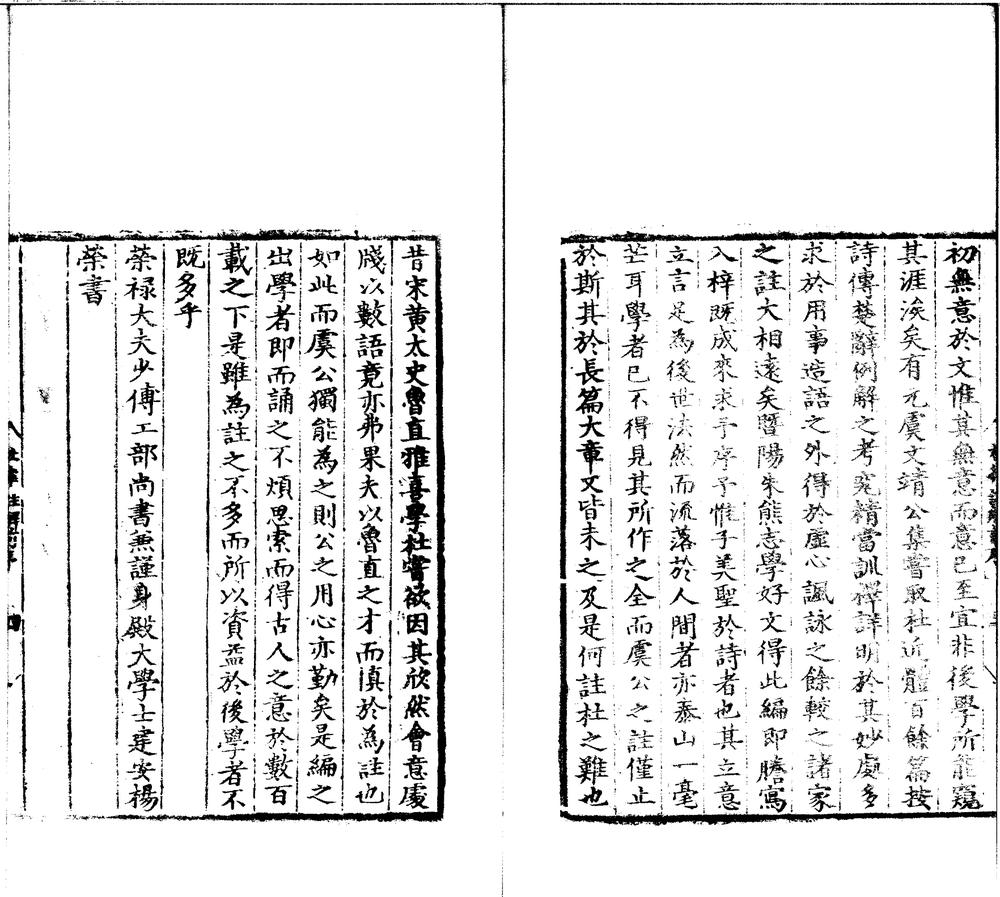 初無意於文惟其無意而意已至宜非後學所能窺
其涯涘矣有元虞文靖公集嘗取杜近體百餘篇按
詩傳楚辭例解之考究精當訓釋詳明於其妙處多
求於用事造語之外得於虛心諷詠之餘較之諸家
之註大相遠矣暨陽朱熊志學好文得此編即謄寫
入梓既成來求予序予惟子美聖於詩者也其立意
立言足為後世法然而流落於人間者亦泰山一毫
芒耳學者已不得見其所作之全而虞公之註僅止
於斯其於長篇大章又皆未之及是何註杜之難也
昔宋黄太史魯直雅喜學杜嘗欲因其欣然會意處
牋以數語竟亦弗果夫以魯直之才而慎於為註也
如此而虞公獨能為之則公之用心亦勤矣是編之
出學者即而誦之不煩思索而得古人之意於數百
載之下是雖為註之不多而所以資益於後學者不
既多乎
榮禄大夫少傅工部尚書兼謹身殿大學士建安楊
榮書